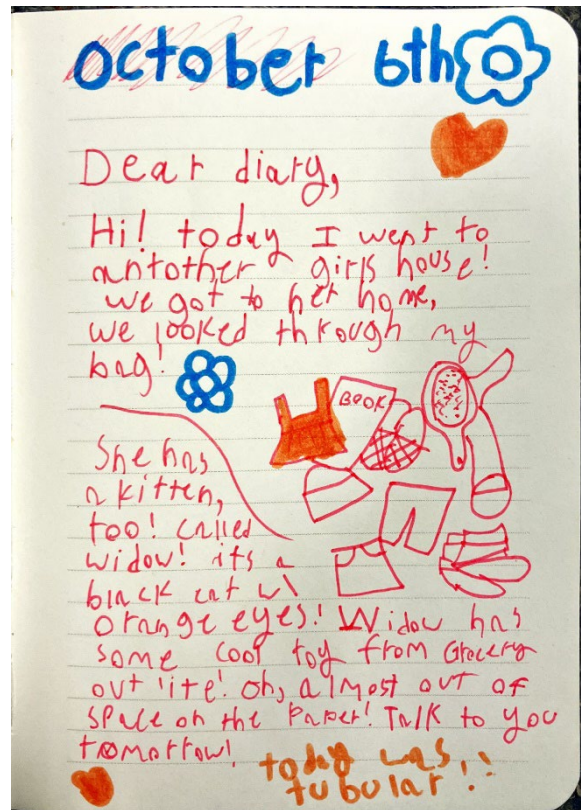 october 6th
Dear diary,
Hi! today I went to
antother girls house!
we got to her home,
we looked through my
bag!
BOOK
She has
a kitten,
too! called
widow! its a
black cat w\
orange eyes! Widow has
some cool toy from Grocery
out lite! oh, almost out of
space on the Paper! Talk to you
tomorrow!
today was
tubular!!